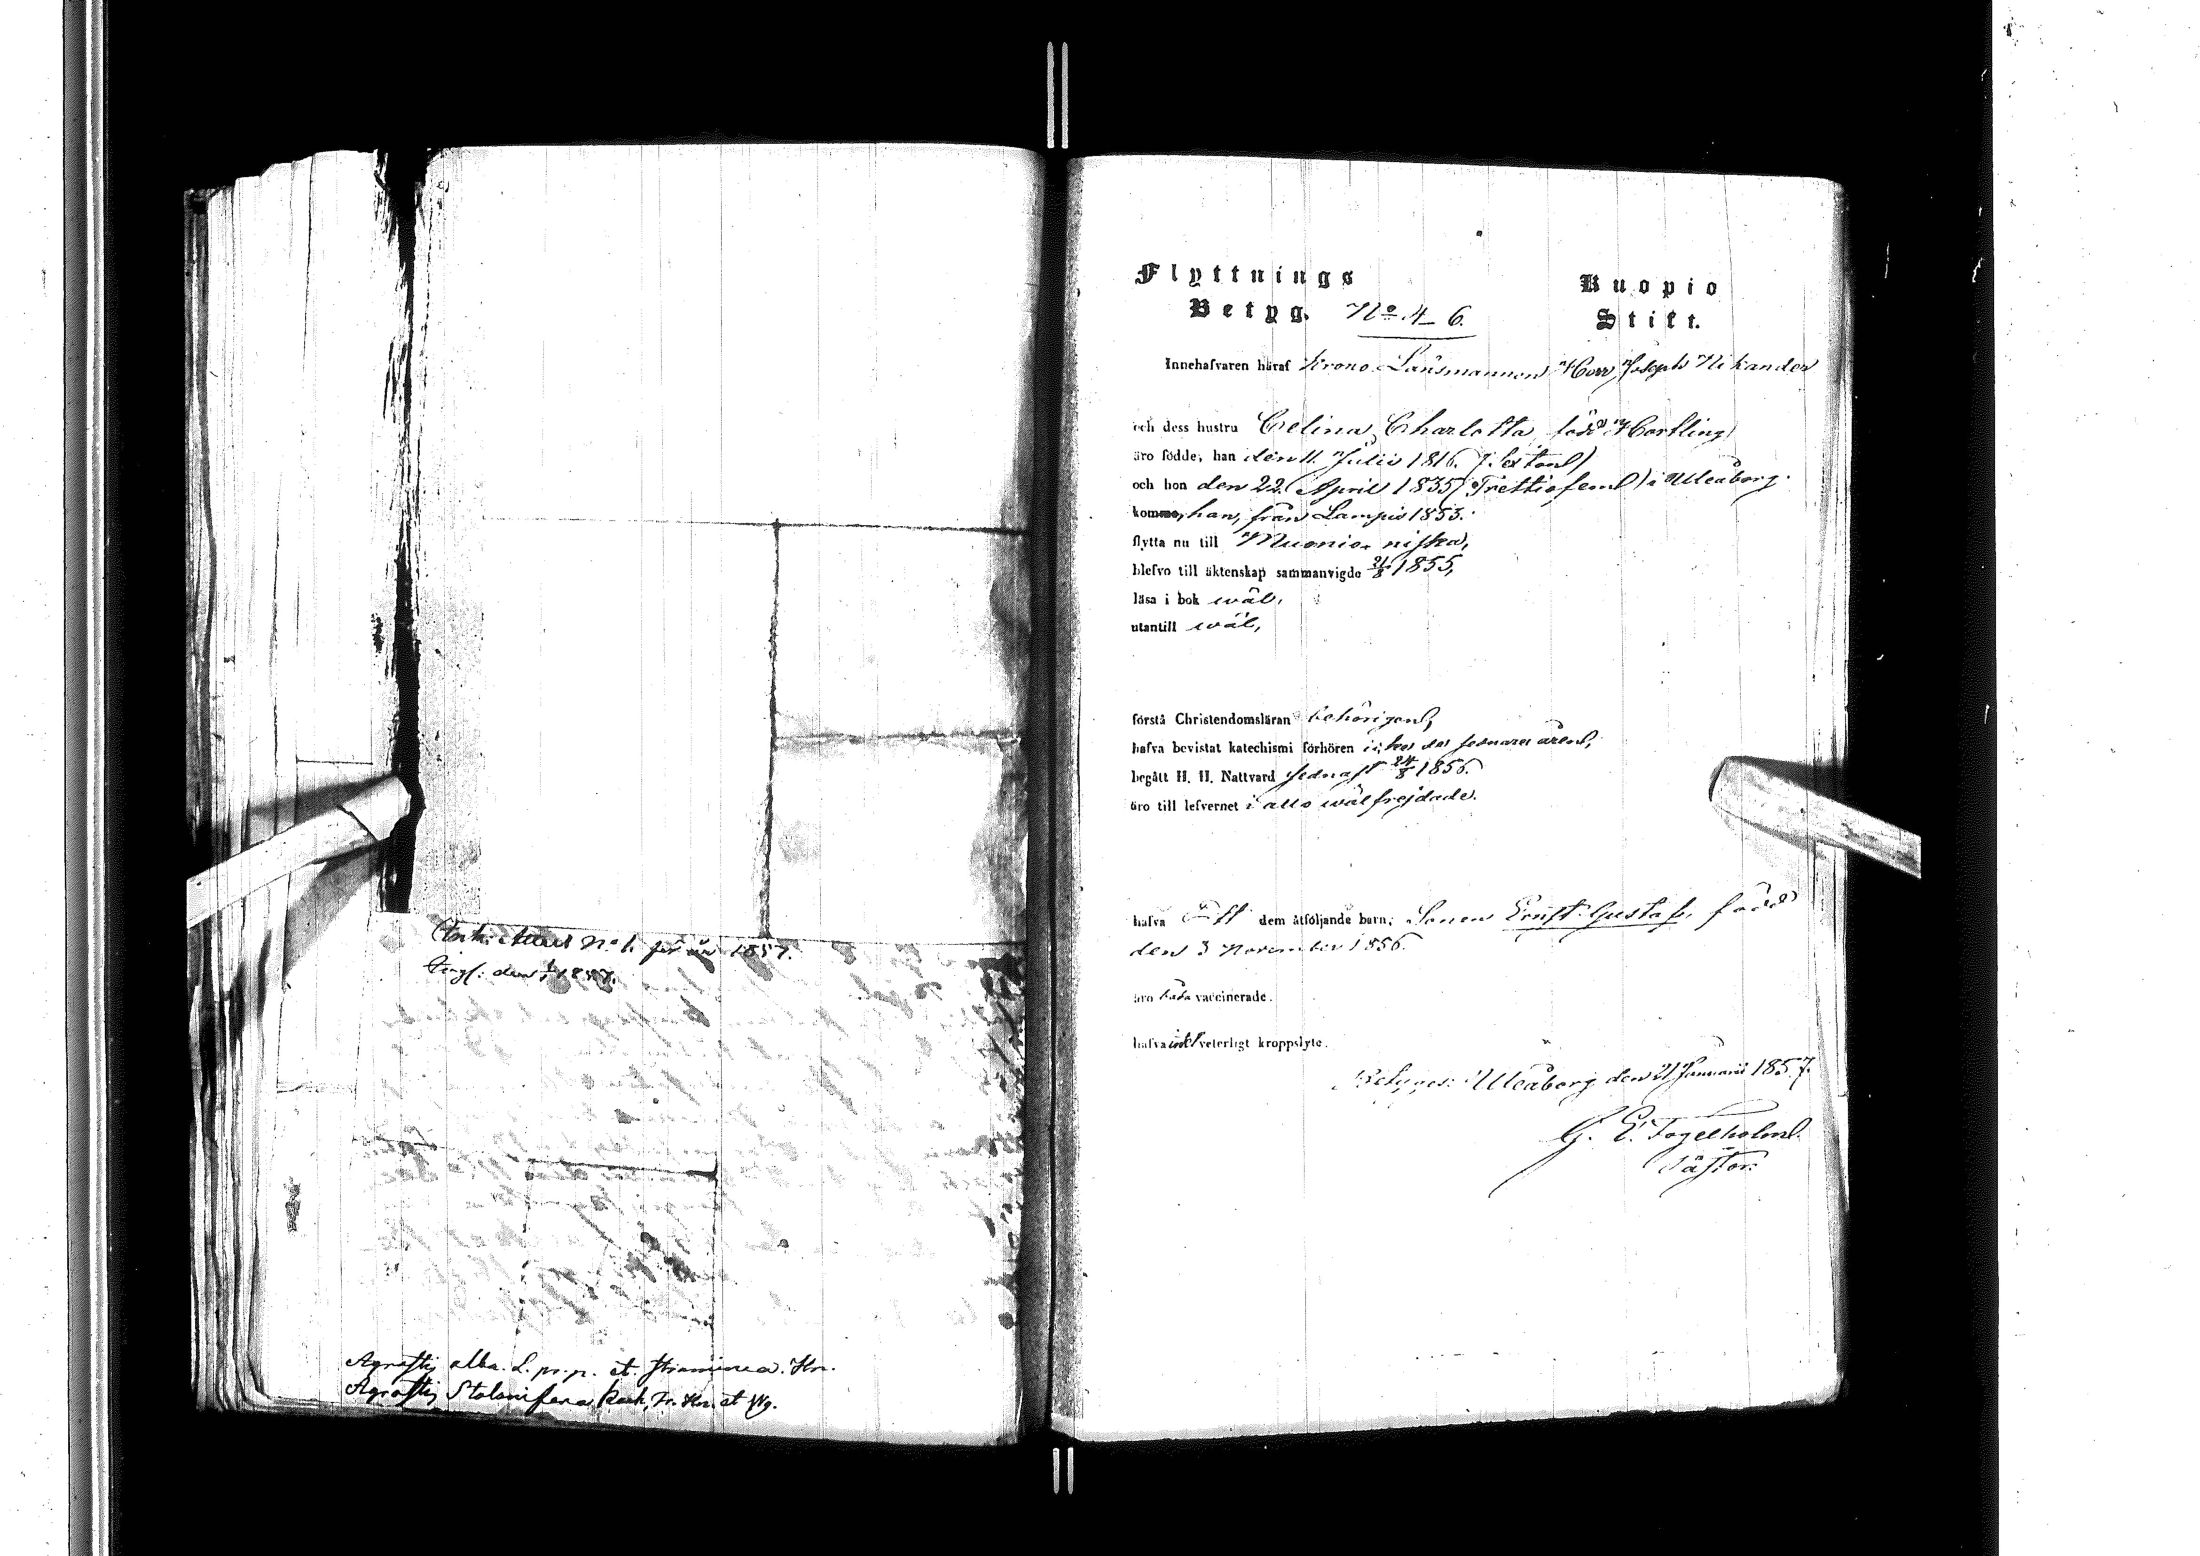 Attest No 1. för år 1857.
Ingf: den 1/1 1857.
Agrostis alba. L. pr. p. et. straminea. Hn.
Agrostis Stolonifera Koch, Fr. Hn. et Wg.
Flyttnings
Betyg. No 4_ 6.
Kuopio
Stift.
Innehafvaren häraf Krono Länsmannen Herr Joseph Nikander
och dess hustru Celina Charlotta född Hartling
äro födde; han den 11. Julii 1816. (Sexton)
och hon den 22. April 1835 (Trettiofem) i Uleåborg.
komne, han, från Lampis 1853.
flytta nu till Muonioniska,
blefvo till äktenskap sammanvigde 21/8 1855,
läsa i bok wäl,
utantill wäl,
förstå Christendomsläran behörigen,
hafva bevistat katechismi förhören icke de senare åren,
begått H. H. Nattvard sednast 24/8 1856.
äro till lefvernet i allo wälfrejdade.
hafva Ett dem åtföljande barn; Sonen Ernst Gustaf, född
den 3 November 1856.
äro båda vaccinerade.
hafva intet veterligt kroppslyte.
Betygas: Uleåborg den 21 Januarii 1857.
G. E. Fogelholm.
Pastor.